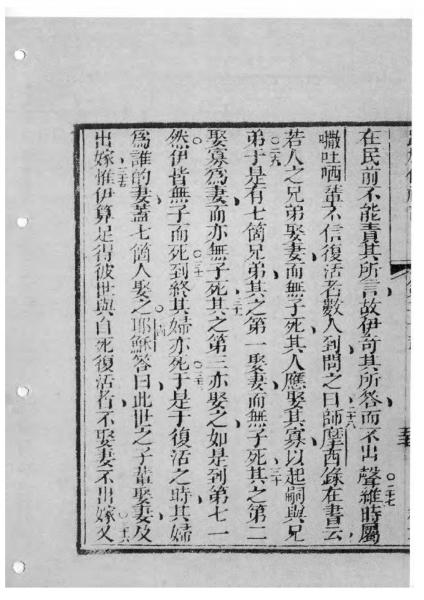 在民前不能責其所言故伊奇其所答而不出聲○二十七維時屬
㗔吐哂輩不信復活者數人到問之曰○二十八師摩西錄在書云
若人之兄弟娶妻而無子死其人應娶其寡以起嗣與兄
弟○二十九于是有七箇兄弟其之第一娶妻而無子死○三十其之第二
娶寡為妻而亦無子死○三十一其之第三亦娶之如是到第七一
然伊皆無子而死○三十二到終其婦亦死○三十三于是于復活之時其婦
為誰的妻蓋七箇人娶之○三十四耶穌答曰此世之子輩娶妻及
出嫁○三十五惟伊算足得彼世與自死復活者不娶妻不出嫁○三十六又